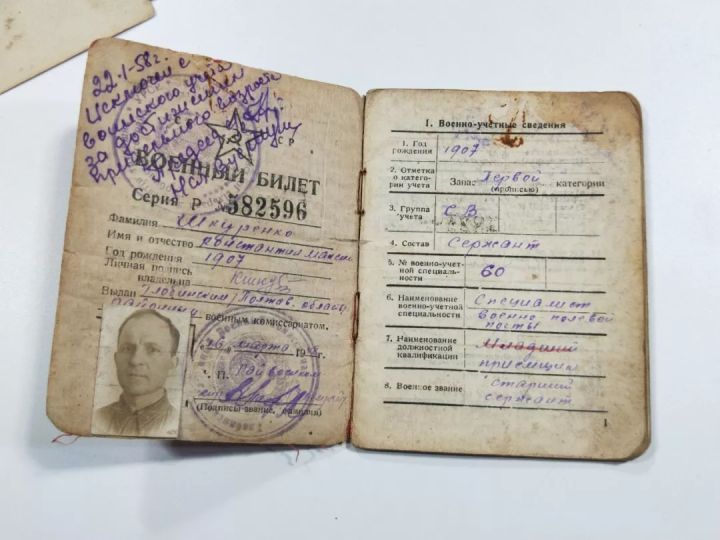 22-1-58г.
Исключен с
воинского учета
за достижением
предельного возраста
СР
ВОЕННЫЙ БИЛЕТ
Серия Р 582596
Фамилия Шкуренко
Имя и отчество
Год рождения 1907
Личная подпись
владельца
Выдан Глобинским Полтав. области
районным военным комиссариатом.
16 марта 19 г.
П. Райвоенком
(Подпись, звание, фамилия)
I. Военно-учетные сведения
1. Год
рождения 1907
2. Отметка
о катего-
рии учета Запас Первой категории
(прописью)
3. Группа
учета С. В.
4. Состав Сержант
5. № военно-учет-
ной специаль-
ности 60
6. Наименование
военно-учетной
специальности Специалист
военно полевой
почты
7. Наименование
должностной
квалификации Младший
приемщик
8. Военное звание Старший
сержант
1